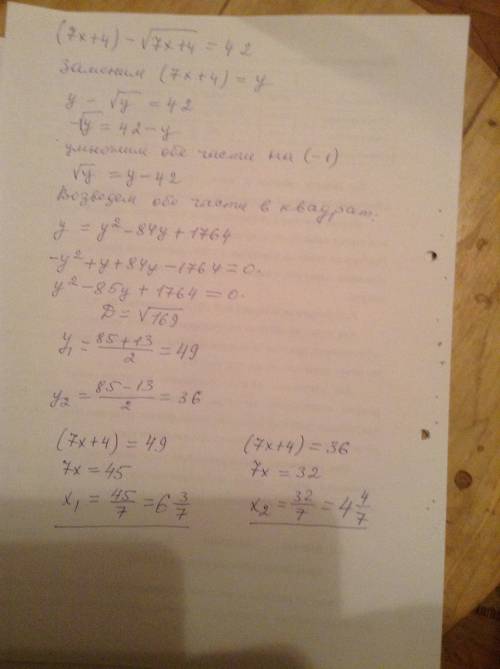 (7x+4) - √(7x+4) = 42
Заменим (7x+4) = y
y - √y = 42
-√y = 42-y
умножим обе части на (-1)
√y = y-42
Возведем обе части в квадрат.
y = y² - 84y + 1764
-y² + y + 84y - 1764 = 0.
y² - 85y + 1764 = 0
D = √169
y₁ = (85+13)/2 = 49
y₂ = (85-13)/2 = 36
(7x+4) = 49
7x = 45
x₁ = 45/7 = 6 3/7
(7x+4) = 36
7x = 32
x₂ = 32/7 = 4 4/7